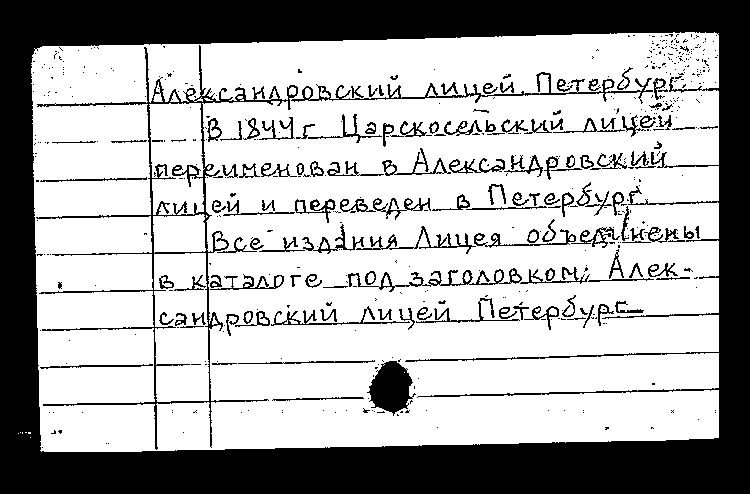 Александровский лицей. Петербург.
В 1844 г Царскосельский лицей
переименован в Александровский
лицей и переведен в Петербург.
Все издания Лицея объединены
в каталоге под заголовком: Алек-
сандровский лицей Петербург